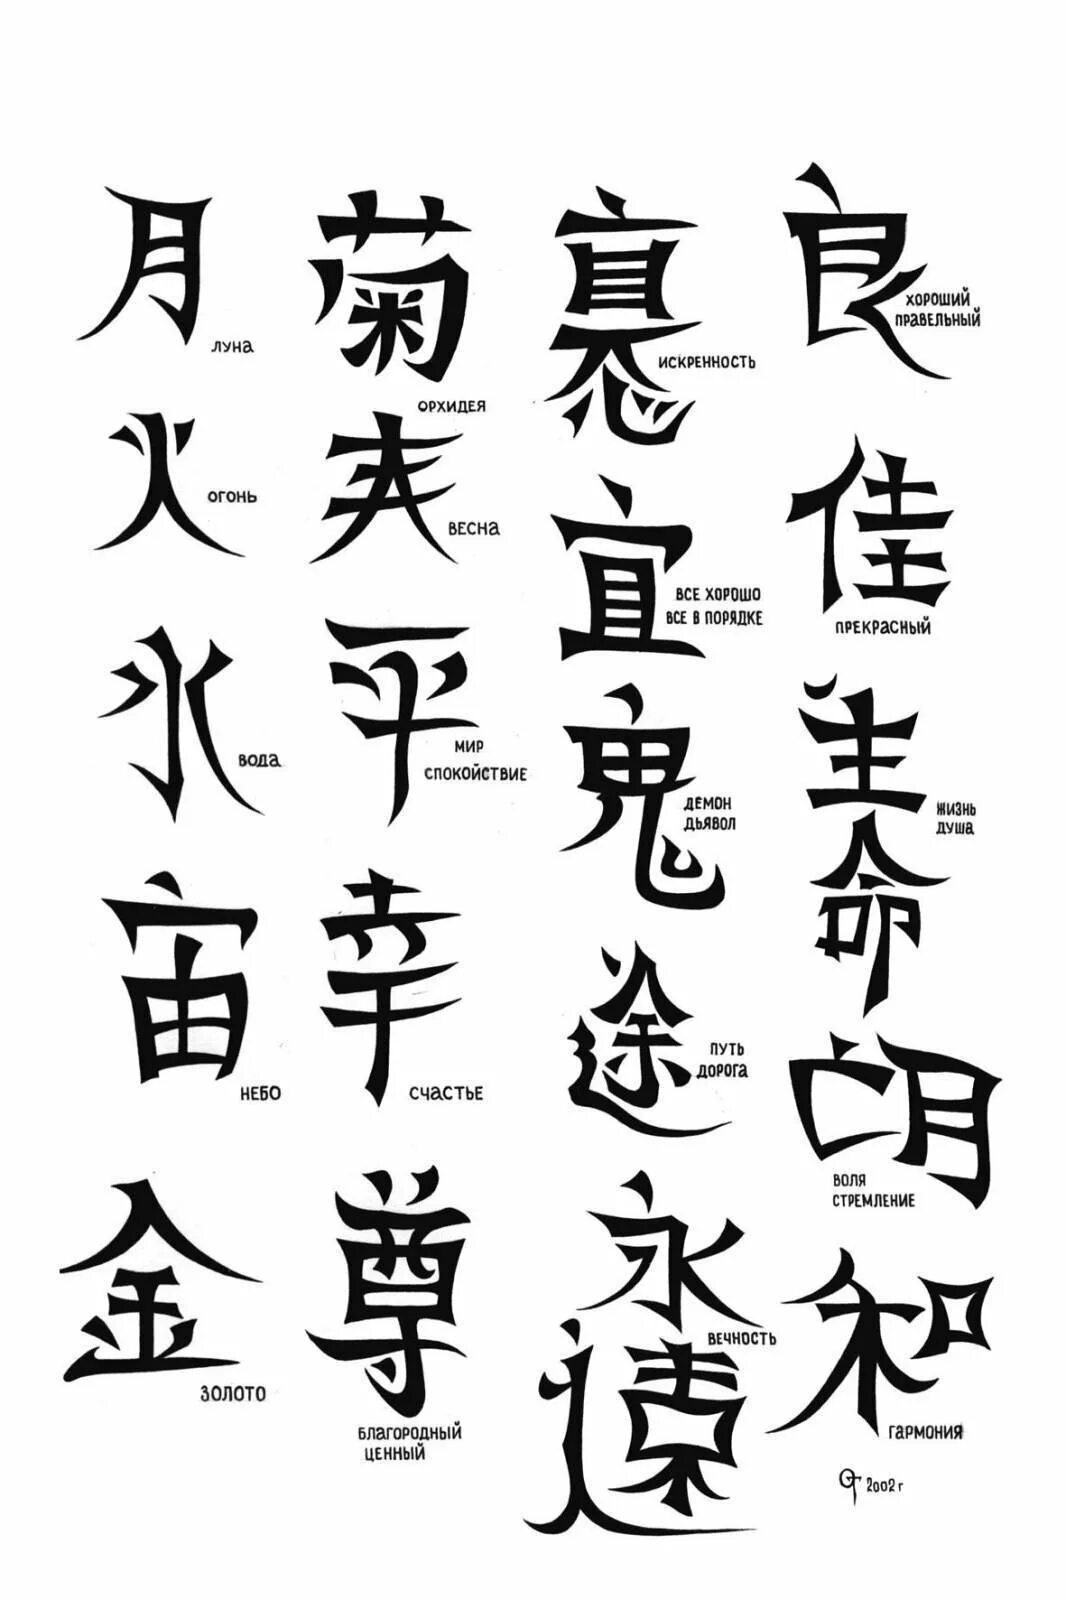 月
ЛУНА
火
ОГОНЬ
水
ВОДА
宙
НЕБО
金
ЗОЛОТО
菊
ОРХИДЕЯ
ВЕСНА
平
МИР
СПОКОЙСТВИЕ
幸
СЧАСТЬЕ
尊
БЛАГОРОДНЫЙ
ЦЕННЫЙ
ИСКРЕННОСТЬ
宜
ВСЕ ХОРОШО
ВСЕ В ПОРЯДКЕ
鬼
ДЕМОН
ДЬЯВОЛ
途
ПУТЬ
ДОРОГА
永
遠
ВЕЧНОСТЬ
良
ХОРОШИЙ
ПРАВЕЛЬНЫЙ
佳
ПРЕКРАСНЫЙ
生
命
ЖИЗНЬ
ДУША
ВОЛЯ
СТРЕМЛЕНИЕ
和
ГАРМОНИЯ
2002 г